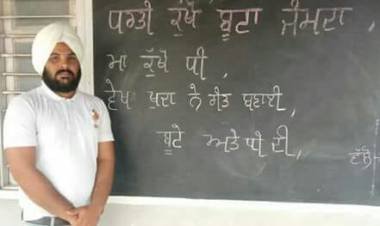 ਧਰਤੀ ਕੁੱਖੋਂ ਬੂਟਾ ਜੰਮਦਾ,
ਮਾਂ ਕੁੱਖੋਂ ਧੀ,
ਵੇਖ ਖੁਦਾ ਨੇ ਬਣਾਈ,
ਬੂਟੇ ਅਤੇ ਧੀ ਦੀ,